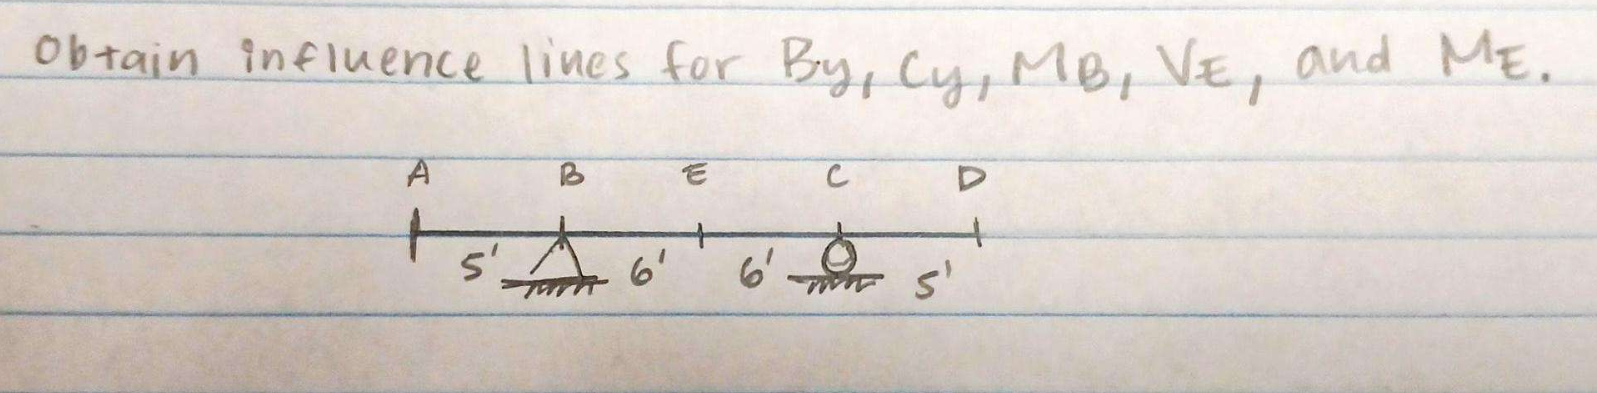 Obtain influence lines for By, Cy, MB, VE, and ME.
A B E C D
5' 6' 6' 5'